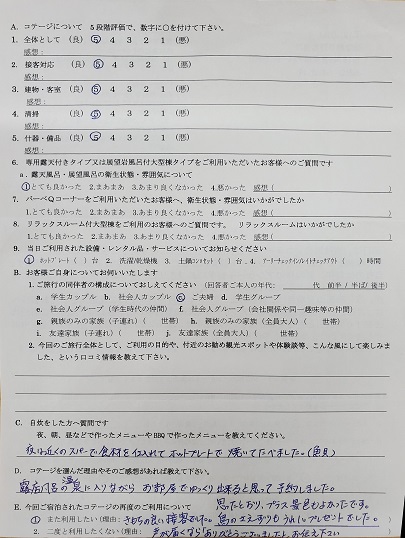 A. コテージについて　５段階評価で、数字に○を付けて下さい。
1. 全体として　(良)　⑤　4　3　2　1　(悪)
感想：
2. 接客対応　(良)　⑤　4　3　2　1　(悪)
感想：
3. 建物・客室　(良)　⑤　4　3　2　1　(悪)
感想：
4. 清掃　(良)　⑤　4　3　2　1　(悪)
感想：
5. 什器・備品　(良)　⑤　4　3　2　1　(悪)
6. 専用露天付きタイプ又は展望岩風呂付大型棟タイプをご利用いただいたお客様へのご質問です
a. 露天風呂・展望風呂の衛生状態・雰囲気について
①とても良かった　2.まあまあ　3.あまり良くなかった　4.悪かった　感想 (　)
7. バーベQコーナーをご利用いただいたお客様へ、衛生状態・雰囲気はいかがでしたか
1.とても良かった　2.まあまあ　3.あまり良くなかった　4.悪かった　感想 (　)
8. リラックスルーム付大型棟をご利用のお客様へのご質問です。　リラックスルームはいかがでしたか
1.とても良かった　2.まあまあ　3.あまり良くなかった　4.悪かった　感想 (　)
9. 当日ご利用された設備・レンタル品・サービスについてお知らせください
① ホットプレート (　) 台　2. 洗濯/乾燥機　3. 土鍋/コンロセット (　) 台　4. アーリーチェックイン/レイトチェックアウト (　) 時間
B. お客様ご自身についてお伺いいたします
1. ご旅行の同伴者の構成についておしえてください (回答者ご本人の年代：　代　前半 / 半ば / 後半)
a. 学生カップル　b. 社会人カップル　ⓒ ご夫婦　d. 学生グループ
e. 社会人グループ (学生時代の仲間)　f. 社会人グループ (会社関係や同一趣味等の仲間)
g. 親族のみの家族 (子連れ) (　世帯)　h. 親族のみの家族 (全員大人) (　世帯)
i. 友達家族 (子連れ) (　世帯)　j. 友達家族 (全員大人) (　世帯)
2. 今回のご旅行全体として、ご利用の目的や、付近のお勧め観光スポットや体験談等、こんな風にして楽しみま
した、という口コミ情報を教えて下さい。
C. 自炊をした方へ質問です
夜、朝、昼などで作ったメニューやBBQで作ったメニューを教えてください。
夜は近くのスーパーで食材を仕入れてホットプレートで焼いてたべました。(魚貝)
D. コテージを選んだ理由やそのご感想があれば教えて下さい。
露店風呂の湯に入りながらお部屋でゆっくり出来ると思って予約しました。
思ったとおり、プラス景色もよかったです。
E. 今回ご宿泊されたコテージの再度のご利用について
① また利用したい (理由：きもちの良い接客でした。鳥のさえずりもうれしいプレゼントでした。)
2. 二度と利用したくない (理由：